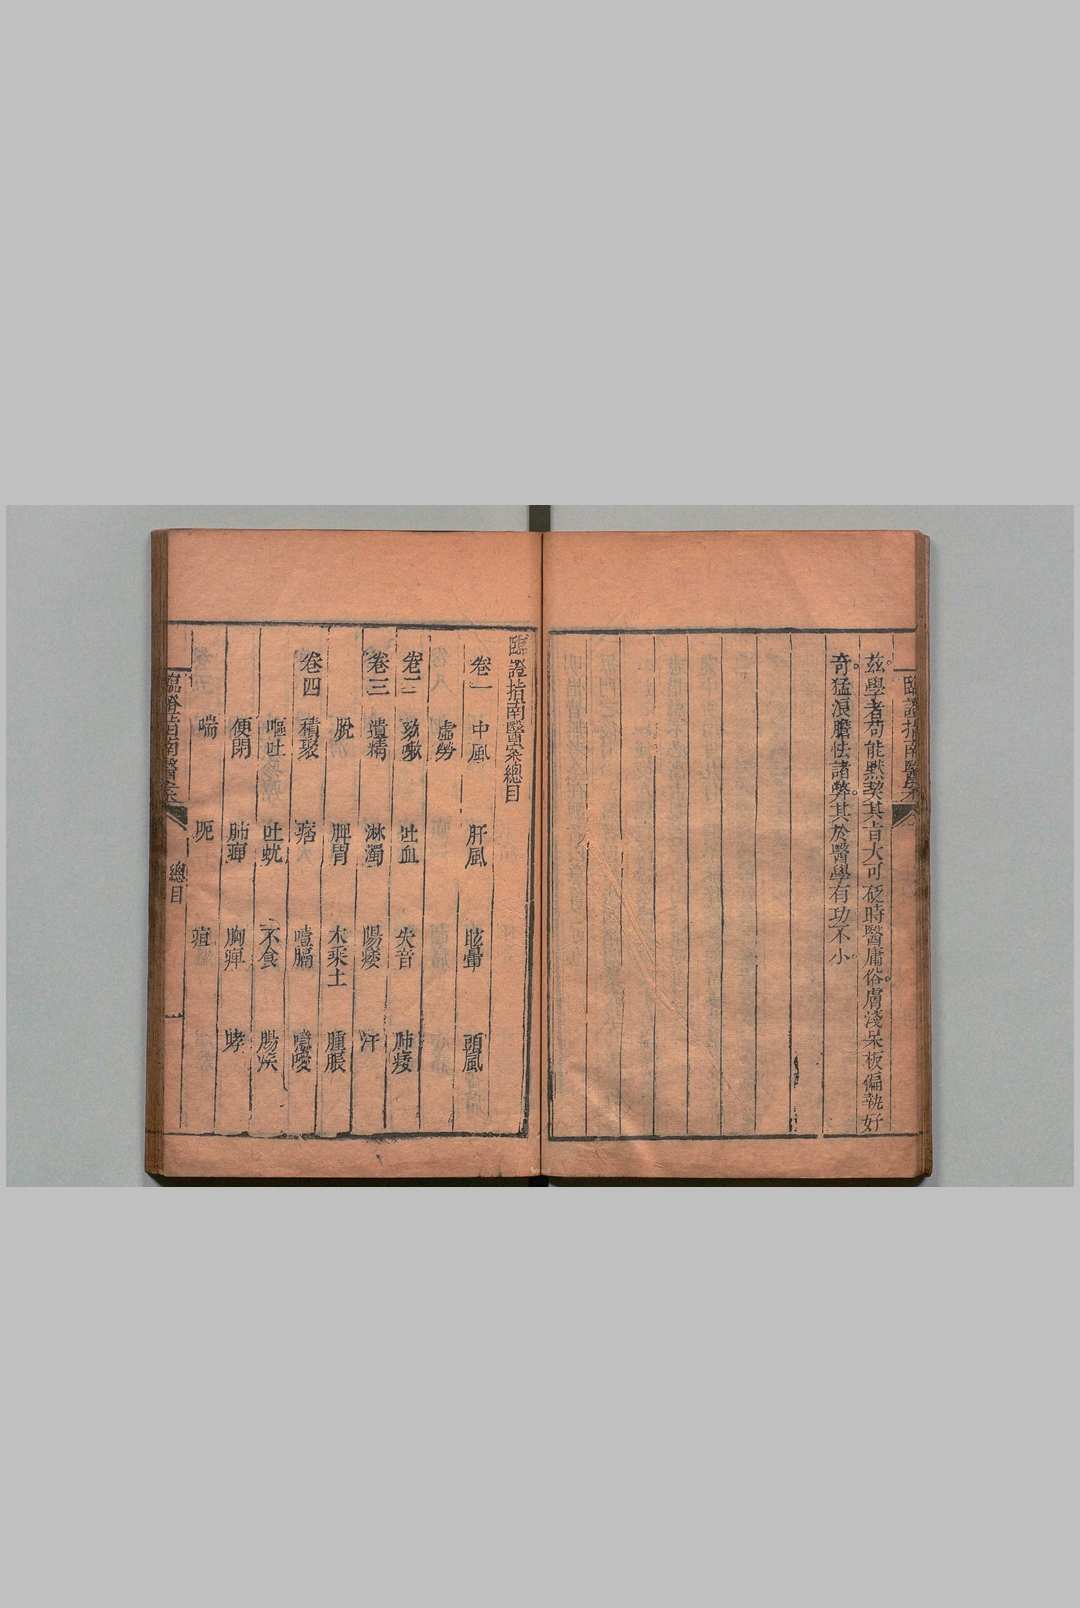 臨證指南醫案
茲學者苟能默契其旨大可砭時醫庸俗膚淺呆板偏執好
奇猛浪膽怯諸弊其於醫學有功不小
臨證指南醫案總目
卷一 中風 肝風 眩暈 頭風
虛勞
卷二 咳嗽 吐血 失音 肺痿
卷三 遺精 淋濁 陽痿 汗
脫 脾胃 木乘土 腫脹
卷四 積聚 痞 噎膈 噫噯
嘔吐 吐蚘 不食 腸痹
便閉 肺痹 胸痹 哮
喘 呃 疸
臨證指南醫案 總目 一